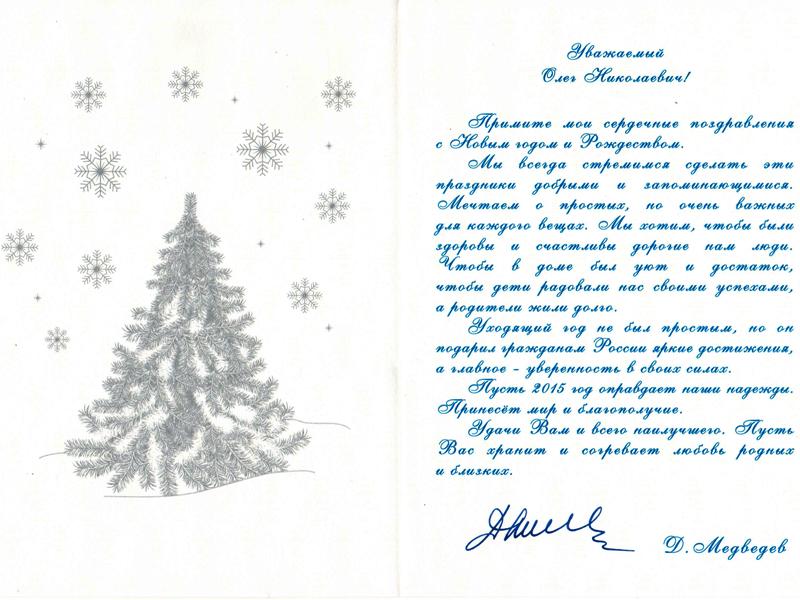 Уважаемый
Олег Николаевич!
Примите мои сердечные поздравления
с Новым годом и Рождеством.
Мы всегда стремимся сделать эти
праздники добрыми и запоминающимися.
Мечтаем о простых, но очень важных
для каждого вещах. Мы хотим, чтобы были
здоровы и счастливы дорогие нам люди.
Чтобы в доме был уют и достаток,
чтобы дети радовали нас своими успехами,
а родители жили долго.
Уходящий год не был простым, но он
подарил гражданам России яркие достижения,
а главное - уверенность в своих силах.
Пусть 2015 год оправдает наши надежды.
Принесёт мир и благополучие.
Удачи Вам и всего наилучшего. Пусть
Вас хранит и согревает любовь родных
и близких.
Д. Медведев